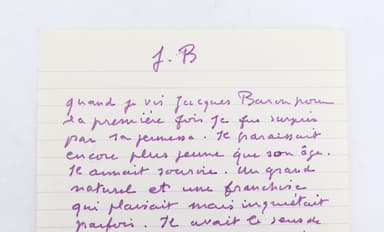 J. B
quand je vis Jacques Baron pour
la première fois je fus surpris
par sa jeunesse. Il paraissait
encore plus jeune que son âge.
Il aimait sourire. Un grand
naturel et une franchise
qui plaisait mais inquiétait
parfois. Il avait le sens de